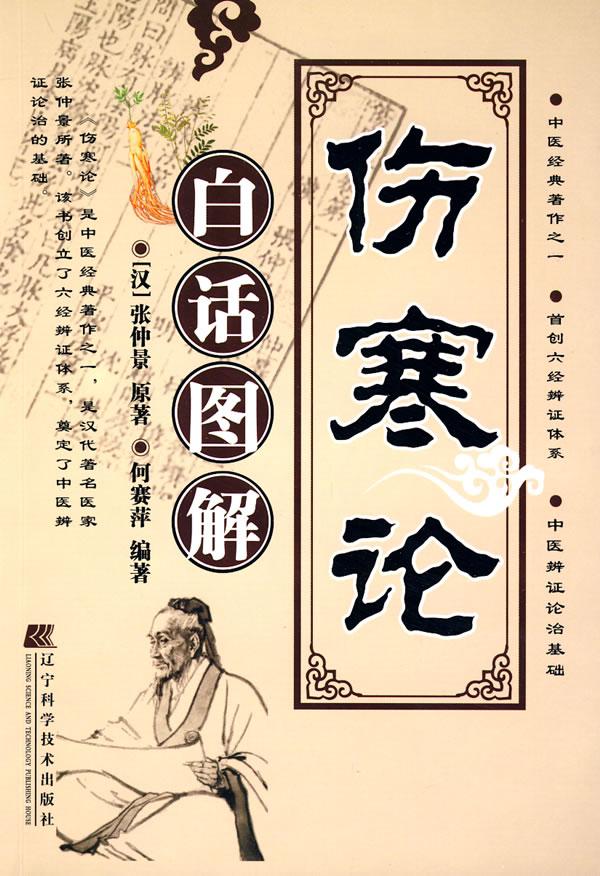 中医经典著作之一
首创六经辨证体系
中医辨证论治基础
伤寒论
白话图解
[汉]张仲景 原著 何赛萍 编著
《伤寒论》是中医经典著作之一，是汉代著名医家
张仲景所著。该书创立了六经辨证体系，奠定了中医辨
证论治的基础。
辽宁科学技术出版社
LIAONING SCIENCE AND TECHNOLOGY PUBLISHING HOUSE